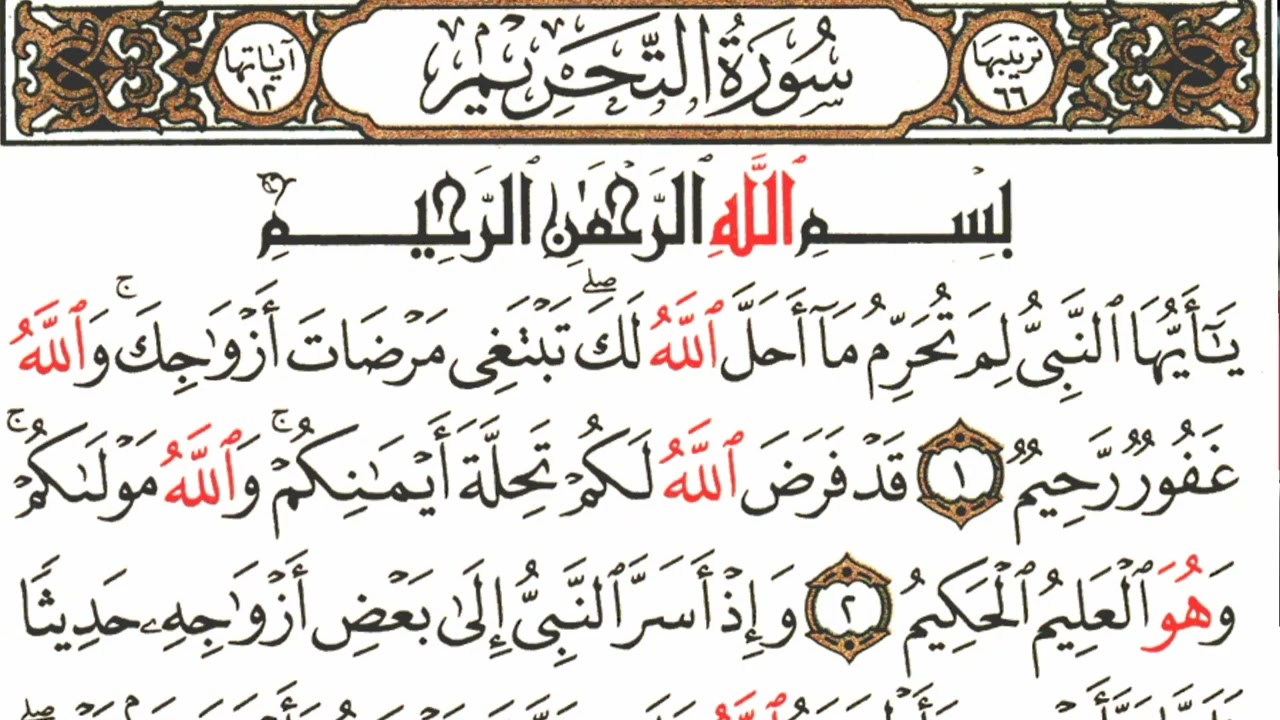 ترتيبها ٦٦ سُورَةُ التَّحْرِيمِ آيَاتها ١٢
بِسْمِ ٱللَّهِ ٱلرَّحْمَٰنِ ٱلرَّحِيمِ
يَٰٓأَيُّهَا ٱلنَّبِىُّ لِمَ تُحَرِّمُ مَآ أَحَلَّ ٱللَّهُ لَكَ ۖ تَبْتَغِى مَرْضَاتَ أَزْوَٰجِكَ ۚ وَٱللَّهُ
غَفُورٌ رَّحِيمٌ ١ قَدْ فَرَضَ ٱللَّهُ لَكُمْ تَحِلَّةَ أَيْمَٰنِكُمْ ۚ وَٱللَّهُ مَوْلَىٰكُمْ ۚ
وَهُوَ ٱلْعَلِيمُ ٱلْحَكِيمُ ٢ وَإِذْ أَسَرَّ ٱلنَّبِىُّ إِلَىٰ بَعْضِ أَزْوَٰجِهِۦ حَدِيثًا